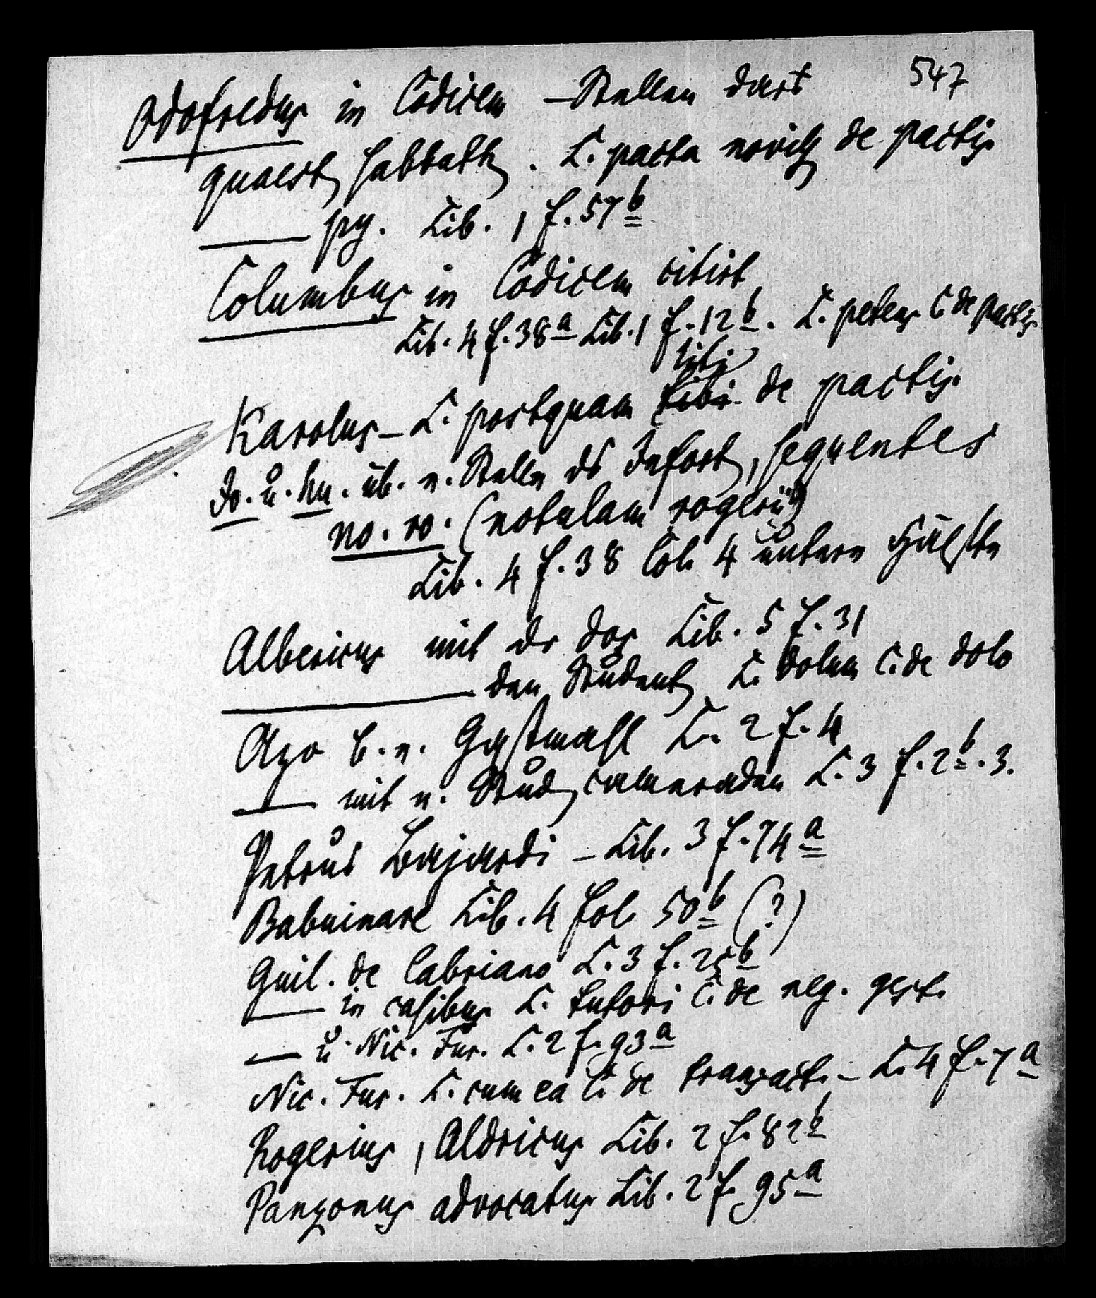 547
Odofredus in Codicem – Stellen dart
quaest sabbath. L. pacta novis de pactis
py. Lib. 1 f. 57 b
Columbus in Codicem citirt
Lib. 4 f. 38 a Lib. 1 f. 12 b. L. petens C de pactis
tibi
Karolus – L. postquam tibi de pactis
Jo. u. hu. üb. e. Stelle ds Infort, sequentes
no. ro. (notulam rogerii)
Lib. 4 f. 38 Col. 4 untere Hälfte
Albericus mit dr dos Lib. 5 f. 31
den Student L. dolum C. de dolo
Azo b. e. Gastmahl L. 2 f. 4
mit e. Stud cameraden L. 3 f. 2 b. 3.
Petrus Bajardi – Lib. 3 f. 74 a
Babuinare Lib. 4 fol. 50 b (?)
Guil. de Cabriano L. 3 f. 25 b
in casibus L. tutori C. de neg. gest.
u. Nic. Fur. L. 2 f. 93 a
Nic. Fur. L. cum ea C. de transact. – L. 4 f. 7 a
Rogerius, Aldricus Lib. 2 f. 82 b
Panzonus advocatus Lib. 2 f. 95 a